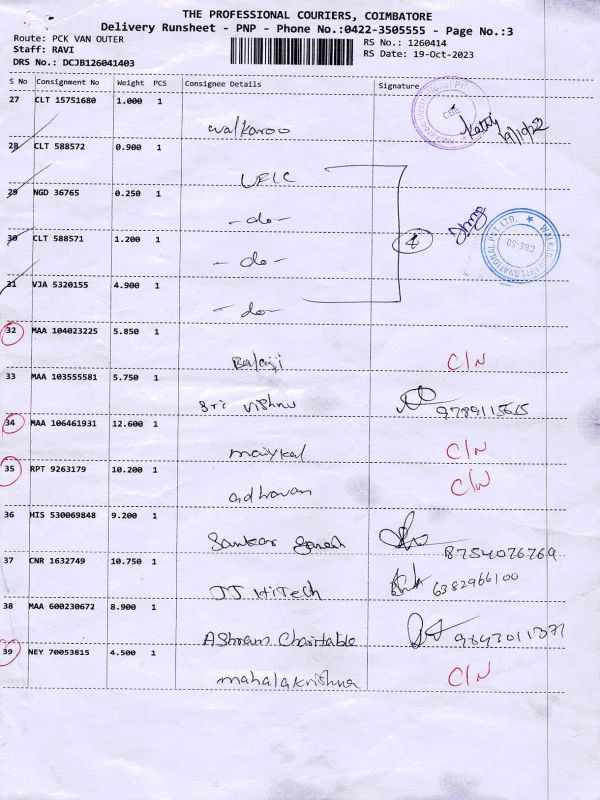 THE PROFESSIONAL COURIERS, COIMBATORE
Delivery Runsheet - PNP - Phone No.:0422-3505555 - Page No.:3
Route: PCK VAN OUTER RS No.: 1260414
Staff: RAVI RS Date: 19-Oct-2023
DRS No.: DCJB126041403
S No Consignment No Weight PCS Consignee Details Signature
27 CLT 15751680 1.000 1
walkaroo
28 CLT 588572 0.900 1
UELC
29 NGD 36765 0.250 1
-do-
30 CLT 588571 1.200 1
4
-do-
31 VJA 5320155 4.900 1
-do-
32 MAA 104023225 5.850 1
Balaji C/N
33 MAA 103555581 5.750 1
Sri Vishnu 9789115615
34 MAA 106461931 12.600 1
C/N
35 RPT 9263179 10.200 1
adhavan C/N
36 HIS 530069848 9.200 1
Sankar Ganesh 8754076769
37 CNR 1632749 10.750 1
JJ HiTech 6382966100
38 MAA 600230672 8.900 1
Ashram Charitable 9843011371
39 NEY 70053815 4.500 1
mahalakrishna C/N